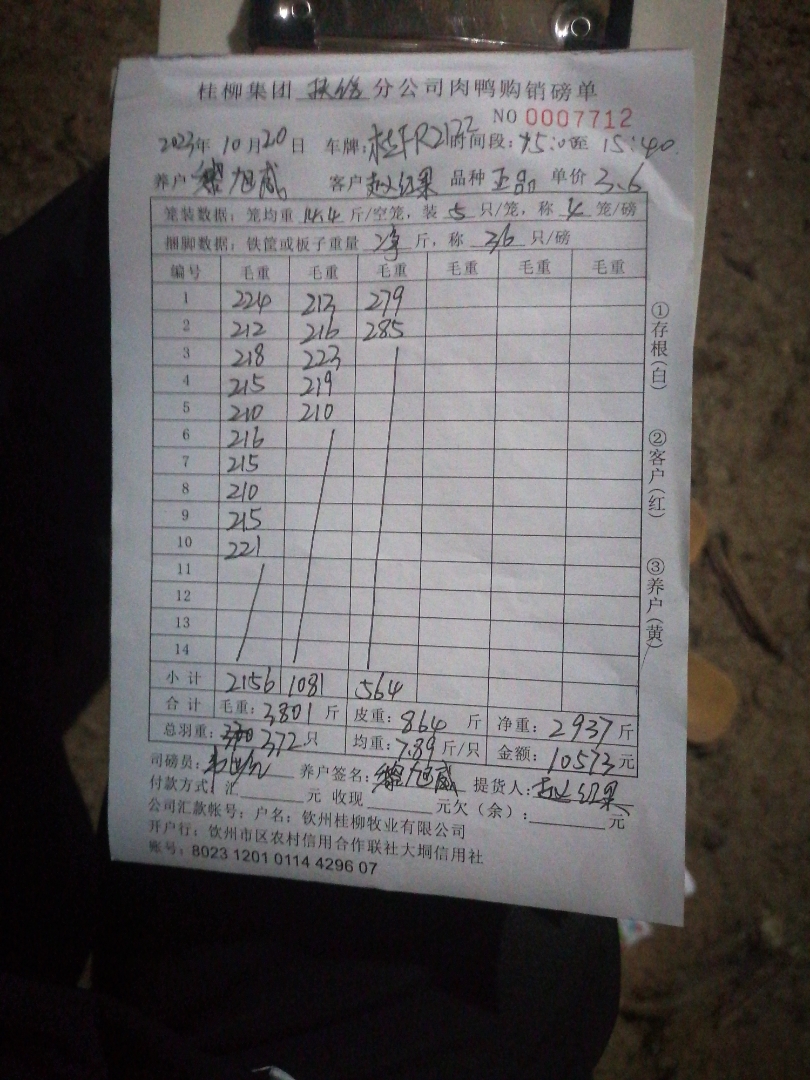 桂柳集团 扶绥 分公司肉鸭购销磅单
NO 0007712
2023年 10月20日 车牌: 桂FR2122 时间段: 15:0 至 15:40
养户 旭威 客户 赵红果 品种 正品 单价 3.6
笼装数据: 笼均重 14.4 斤/空笼, 装 5 只/笼, 称 4 笼/磅
捆脚数据: 铁筐或板子重量 净 斤, 称 36 只/磅
编号 毛重 毛重 毛重 毛重 毛重 毛重
1 224 213 279
2 212 216 285
3 218 223
4 215 219
5 210 210
6 216
7 215
8 210
9 215
10 221
11
12
13
14
小计 2156 1081 564
合计 毛重: 3801 斤 皮重: 864 斤 净重: 2937 斤
总羽重: 372 只 均重: 7.89 斤/只 金额: 10573 元
司磅员: 养户签名: 旭威 提货人: 赵红果
付款方式: 汇 元 收现 元欠(余): 元
公司汇款帐号: 户名: 钦州桂柳牧业有限公司
开户行: 钦州市区农村信用合作联社大垌信用社
账号: 8023 1201 0114 4296 07
①存根(白) ②客户(红) ③养户(黄)